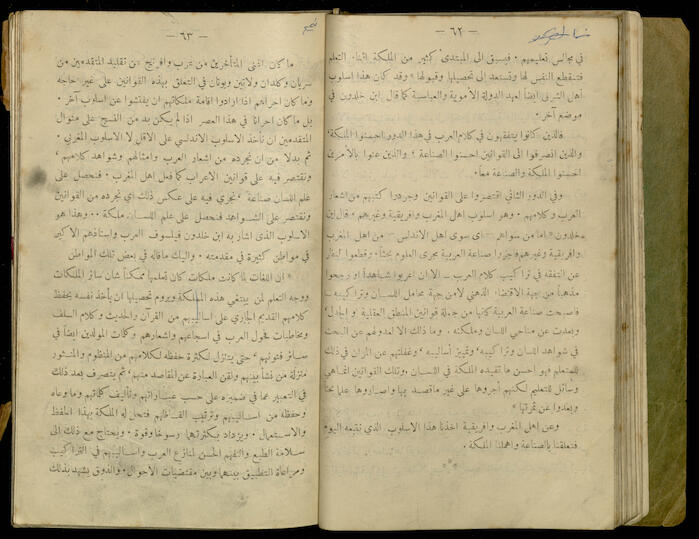 — ٦٢ —
في مجالس تعليمهم . فيسبق الى المبتدئ كثير من الملكة اثناء التعلم
فتنقطع النفس لها وتستعد الى تحصيلها وقبولها » وقد كان هذا اسلوب
أهل الشرق ايضاً لعهد الدولة الأموية والعباسية كما قال ابن خلدون في
موضع آخر .
فالذين كانوا يتفقهون في كلام العرب في هذا الدور احسنوا الملكة
والذين انصرفوا الى القوانين احسنوا الصناعة ؛ والذين عنوا بالأمرين
احسنوا الملكة والصناعة معاً .
وفي الدور الثاني اقتصروا على القوانين وجردوا كتبهم من اشعار
العرب وكلامهم . وهو اسلوب اهل المغرب وافريقية وغيرهم ، قال ابن
خلدون « اما من سواهم — اي سوى اهل الاندلس — من اهل المغرب
وافريقية وغيرهم فأجروا صناعة العربية مجرى العلوم بحثاً ، وقطعوا النظر
عن التفقه في تراكيب كلام العرب الا ان اعربوا شاهداً او رجحوا
مذهباً من جهة الاقتضاء الذهني لا من جهة محامل اللسان وتراكيبه .
فاصبحت صناعة العربية كأنها من جملة قوانين المنطق العقلية او الجدل
وبعدت عن مناحي اللسان وملكته . وما ذلك الا لعدولهم عن البحث
في شواهد اللسان وتراكيبه وتمييز أساليبه ، وغفلتهم عن المران في ذلك
للمتعلم فهو احسن ما تفيده الملكة في اللسان . وتلك القوانين انما هي
وسائل للتعليم لكنهم أجروها على غير ما قصد بها واصاروها علماً بحتاً
وبعدوا عن ثمرتها »
وعن اهل المغرب وافريقية اخذنا هذا الاسلوب الذي نقيمه اليوم .
فتعلقنا بالصناعة واهملنا الملكة .
— ٦٣ —
ما كان اغنى المتأخرين من عرب وافرنج عن تقليد المتقدمين من
سريان وكلدان ولاتين ويونان في التعلق بهذه القوانين على غير حاجة
وما كان احراهم اذا ارادوا اقامة ملكاتهم ان يفتشوا عن اسلوب آخر .
بل ما كان احرانا في هذا العصر اذا لم يكن بد من النسج على منوال
المتقدمين ان نأخذ الاسلوب الاندلسي على الاقل لا الاسلوب المغربي .
ثم بدلا من ان نجرده من اشعار العرب وامثالهم وشواهد كلامهم ،
ونقتصر فيه على قوانين الاعراب كما فعل اهل المغرب . فنحصل على
علم اللسان صناعة ، نجري فيه على عكس ذلك اي نجرده من القوانين
ونقتصر على الشواهد فنحصل على علم اللسان ملكة . . وهذا هو
الاسلوب الذي اشار به ابن خلدون فيلسوف العرب واستاذهم الاكبر
في مواطن كثيرة في مقدمته . واليك ما قاله في بعض تلك المواطن
« ان اللغات لما كانت ملكات كان تعلمها ممكناً شأن سائر الملكات
ووجه التعلم لمن يبتغي هذه الملكة ويروم تحصيلها ان يأخذ نفسه بحفظ
كلامهم القديم الجاري على اساليبهم من القرآن والحديث وكلام السلف
ومخاطبات فحول العرب في اسجاعهم واشعارهم وكلمات المولدين ايضاً في
سائر فنونهم ، حتى يتنزل لكثرة حفظه لكلامهم من المنظوم والمنثور
منزلة من نشأ بينهم ولقن العبارة عن المقاصد منهم ، ثم يتصرف بعد ذلك
في التعبير عما في ضميره على حسب عباراتهم وتأليف كلماتهم وما وعاه
وحفظه من اساليبهم وترتيب الفاظهم فتحصل له الملكة بهذا الحفظ
والاستعمال . ويزداد بكثرتهما رسوخاً وقوة . ويحتاج مع ذلك الى
سلامة الطبع والتفهم الحسن لمنازع العرب واساليبهم في التراكيب
ومراعاة التطبيق بينها وبين مقتضيات الاحوال . والذوق يشهد بذلك